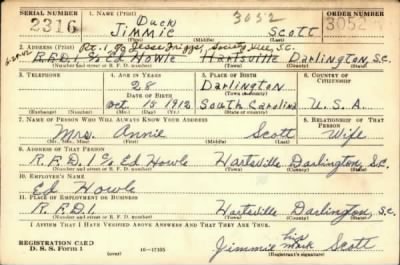 SERIAL NUMBER 1. NAME (Print) ORDER NUMBER
2316 Duck 3052 3052
Jimmie Scott
(First) (Middle) (Last)
2. ADDRESS (Print) Rt. 1 % Jesse Society Hill, S.C.
R.F.D. 1 % Ed Howle Hartsville Darlington, S.C.
(Number and street or R. F. D. number) (Town) (County) (State)
3. TELEPHONE 4. AGE IN YEARS 5. PLACE OF BIRTH 6. COUNTRY OF CITIZENSHIP
28 Darlington
DATE OF BIRTH (Town or county)
Oct 15 1912 South Carolina U.S.A.
(Exchange) (Number) (Mo.) (Day) (Yr.) (State or country)
7. NAME OF PERSON WHO WILL ALWAYS KNOW YOUR ADDRESS 8. RELATIONSHIP OF THAT PERSON
Mrs. Annie Scott Wife
(Mr., Mrs., Miss) (First) (Middle) (Last)
9. ADDRESS OF THAT PERSON
R.F.D. 1 % Ed Howle Hartsville Darlington, S.C.
(Number and street or R. F. D. number) (Town) (County) (State)
10. EMPLOYER'S NAME
Ed Howle
11. PLACE OF EMPLOYMENT OR BUSINESS
R.F.D. 1. Hartsville Darlington, S.C.
(Number and street or R. F. D. number) (Town) (County) (State)
I AFFIRM THAT I HAVE VERIFIED ABOVE ANSWERS AND THAT THEY ARE TRUE.
REGISTRATION CARD his
D. S. S. Form 1 (over) 16—17105 Jimmie mark Scott
(Registrant's signature)